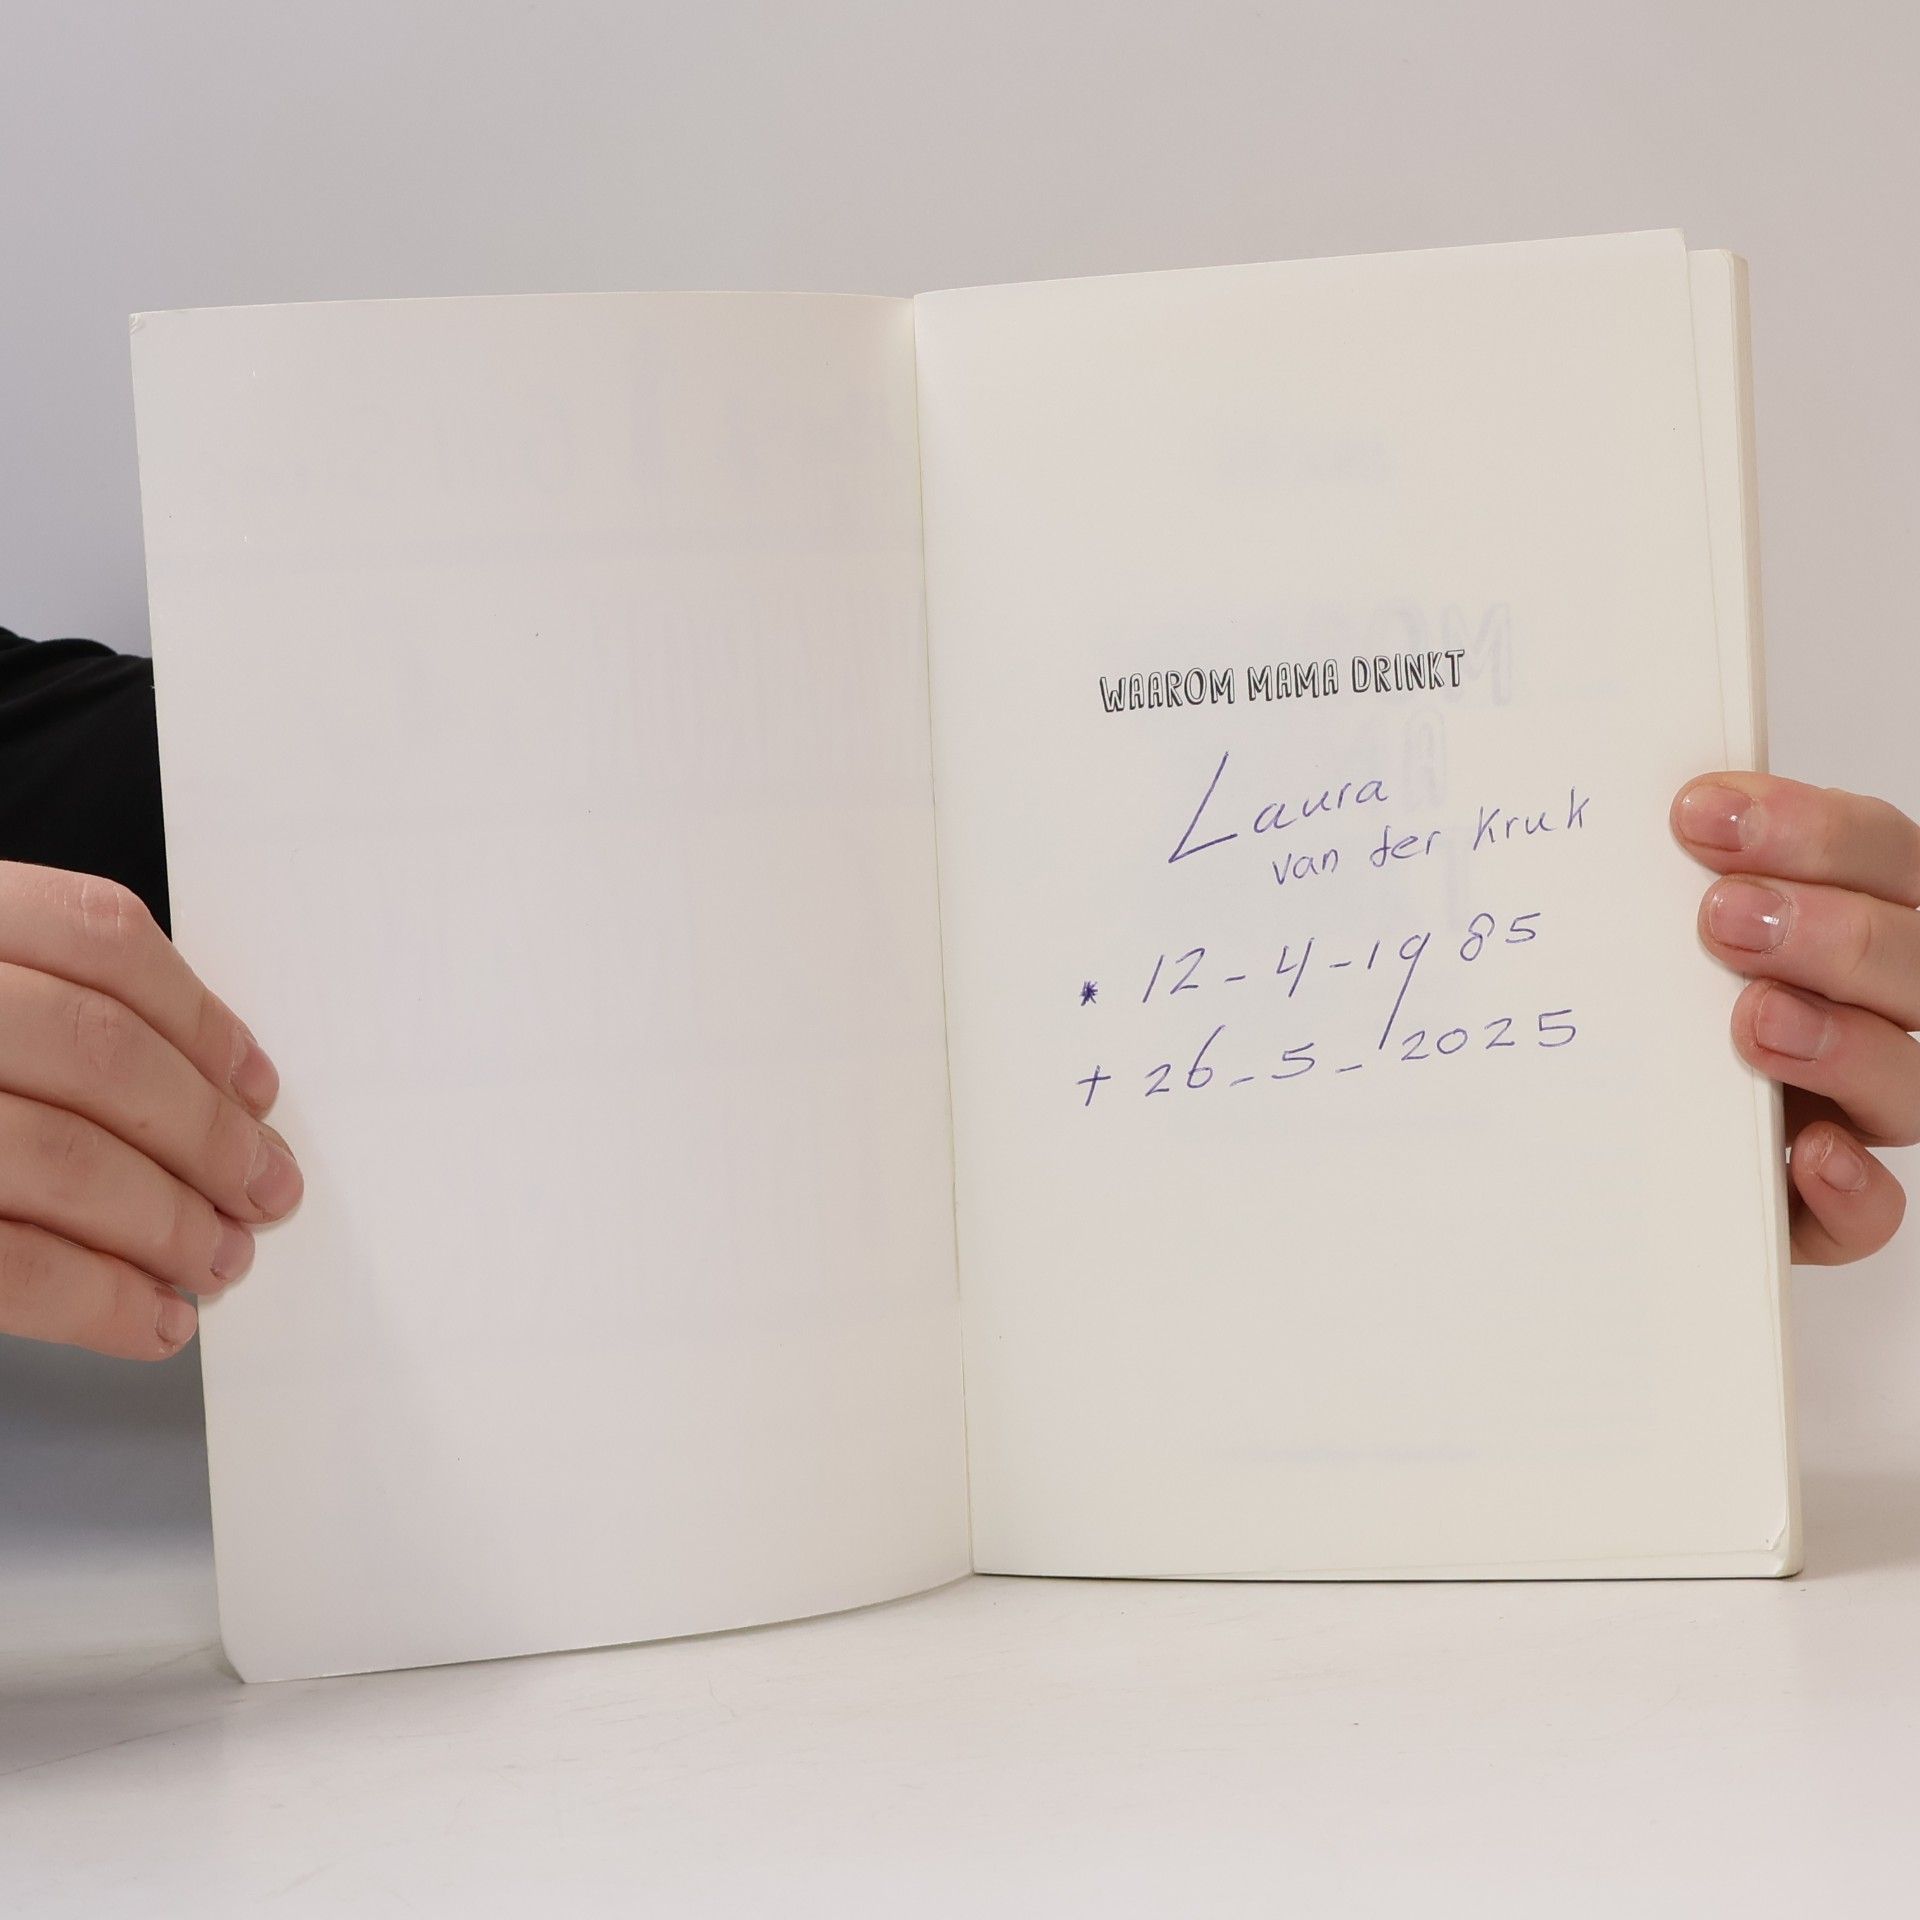 WAAROM MAMA DRINKT
Laura
van der Kruk
* 12-4-1985
+ 26-5-2025